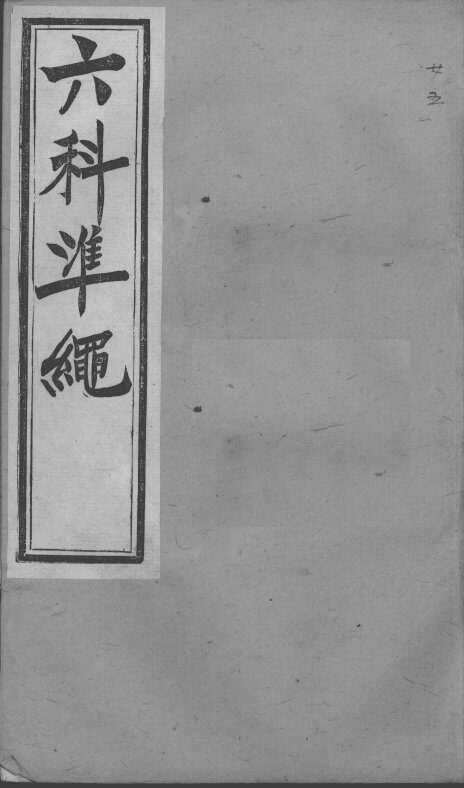 廿五
六科準繩